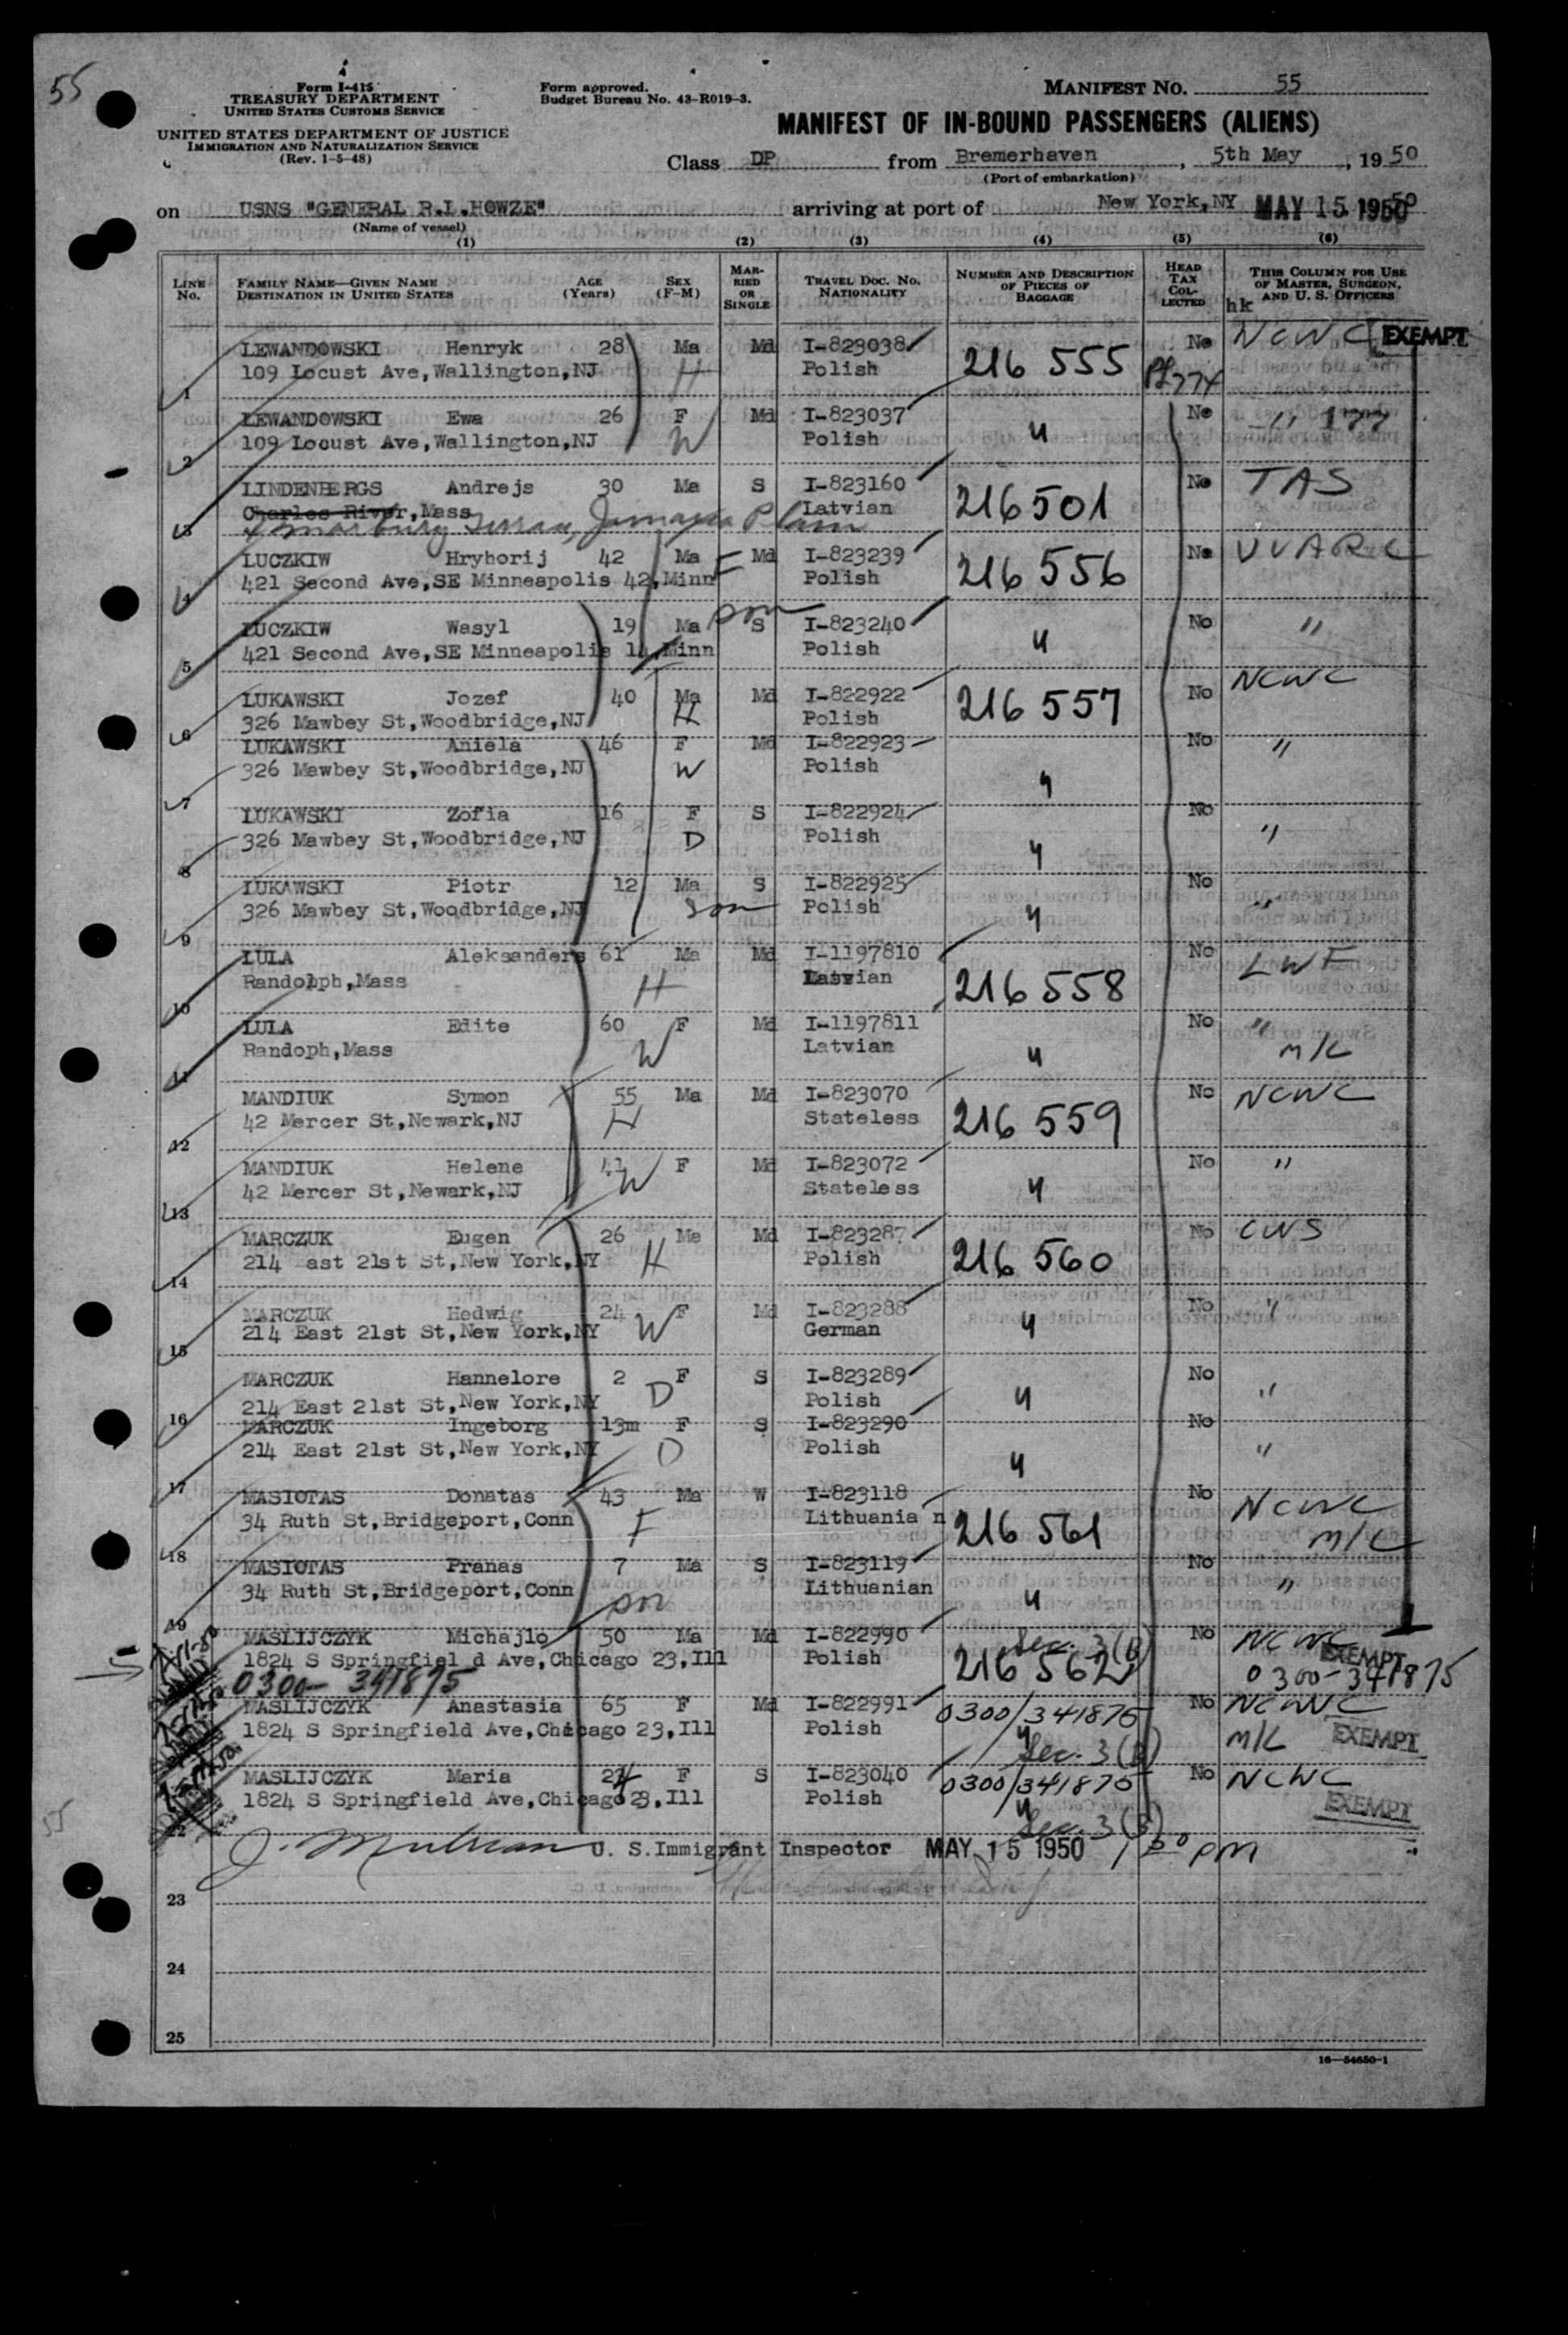 55
Form I-415
TREASURY DEPARTMENT
UNITED STATES CUSTOMS SERVICE
UNITED STATES DEPARTMENT OF JUSTICE
IMMIGRATION AND NATURALIZATION SERVICE
(Rev. 1-5-48)
Form approved.
Budget Bureau No. 43-R019-3.
MANIFEST NO. 55
MANIFEST OF IN-BOUND PASSENGERS (ALIENS)
Class DP from Bremerhaven, 5th May, 1950
(Port of embarkation)
on USNS "GENERAL R.L.HOWZE" arriving at port of New York,NY MAY 15 1950
(Name of vessel)
(1) (2) (3) (4) (5) (6)
LINE No. FAMILY NAME—GIVEN NAME DESTINATION IN UNITED STATES AGE (Years) SEX (F-M) MARRIED OR SINGLE TRAVEL DOC. NO. NATIONALITY NUMBER AND DESCRIPTION OF PIECES OF BAGGAGE HEAD TAX COLLECTED THIS COLUMN FOR USE OF MASTER, SURGEON, AND U. S. OFFICERS
hk
LEWANDOWSKI Henryk 28 Ma Md I-823038 216 555 No NCWC EXEMPT
1 109 Locust Ave,Wallington,NJ H Polish
LEWANDOWSKI Ewa 26 F Md I-823037 " No "
2 109 Locust Ave,Wallington,NJ W Polish
LINDENBERGS Andrejs 30 Ma S I-823160 216501 No TAS
3 Charles River,Mass Latvian
Terrace, Jamaica Plain
LUCZKIW Hryhorij 42 Ma F Md I-823239 216 556 No UUARC
4 421 Second Ave,SE Minneapolis 42,Minn Polish
LUCZKIW Wasyl 19 Ma son S I-823240 " No "
5 421 Second Ave,SE Minneapolis 14,Minn Polish
LUKAWSKI Jozef 40 Ma Md I-822922 216 557 No NCWC
6 326 Mawbey St,Woodbridge,NJ H Polish
LUKAWSKI Aniela 46 F Md I-822923 No "
7 326 Mawbey St,Woodbridge,NJ W Polish "
LUKAWSKI Zofia 16 F S I-822924 No
8 326 Mawbey St,Woodbridge,NJ D Polish " "
LUKAWSKI Piotr 12 Ma S I-822925 No
9 326 Mawbey St,Woodbridge,NJ son Polish " "
LULA Aleksanders 61 Ma Md I-1197810 No LWF
10 Randolph,Mass H Latvian 216 558
LULA Edite 60 F Md I-1197811 No "
11 Randoph,Mass W Latvian " M/L
MANDIUK Symon 55 Ma Md I-823070 No NCWC
12 42 Mercer St,Newark,NJ H Stateless 216 559
MANDIUK Helene 41 F Md I-823072 No "
13 42 Mercer St,Newark,NJ W Stateless "
MARCZUK Eugen 26 Ma Md I-823287 No CWS
14 214 ast 21st St,New York,NY H Polish 216 560
MARCZUK Hedwig 24 F Md I-823288 No "
15 214 East 21st St,New York,NY W German "
MARCZUK Hannelore 2 F S I-823289 No
16 214 East 21st St,New York,NY D Polish " "
MARCZUK Ingeborg 13m F S I-823290 No
17 214 East 21st St,New York,NY D Polish " "
MASIOTAS Donatas 43 Ma W I-823118 No NCWC
18 34 Ruth St,Bridgeport,Conn F Lithuania n 216 561 M/L
MASIOTAS Pranas 7 Ma S I-823119 No
19 34 Ruth St,Bridgeport,Conn son Lithuanian " "
MASLIJCZYK Michajlo 50 Ma Md I-822990 Sec. 3(B) No NCWC
1824 S Springfiel d Ave,Chicago 23,Ill Polish 216 562 EXEMPT
0300-341875 0300-341875
MASLIJCZYK Anastasia 65 F Md I-822991 0300/341875 No NCWC
1824 S Springfield Ave,Chicago 23,Ill Polish " Sec. 3(B) M/L EXEMPT
MASLIJCZYK Maria 24 F S I-823040 0300/341875 No NCWC
22 1824 S Springfield Ave,Chicago 23,Ill Polish " Sec. 3(B) EXEMPT
U. S.Immigrant Inspector MAY 15 1950 pm
23
24
25
16—54650-1
55